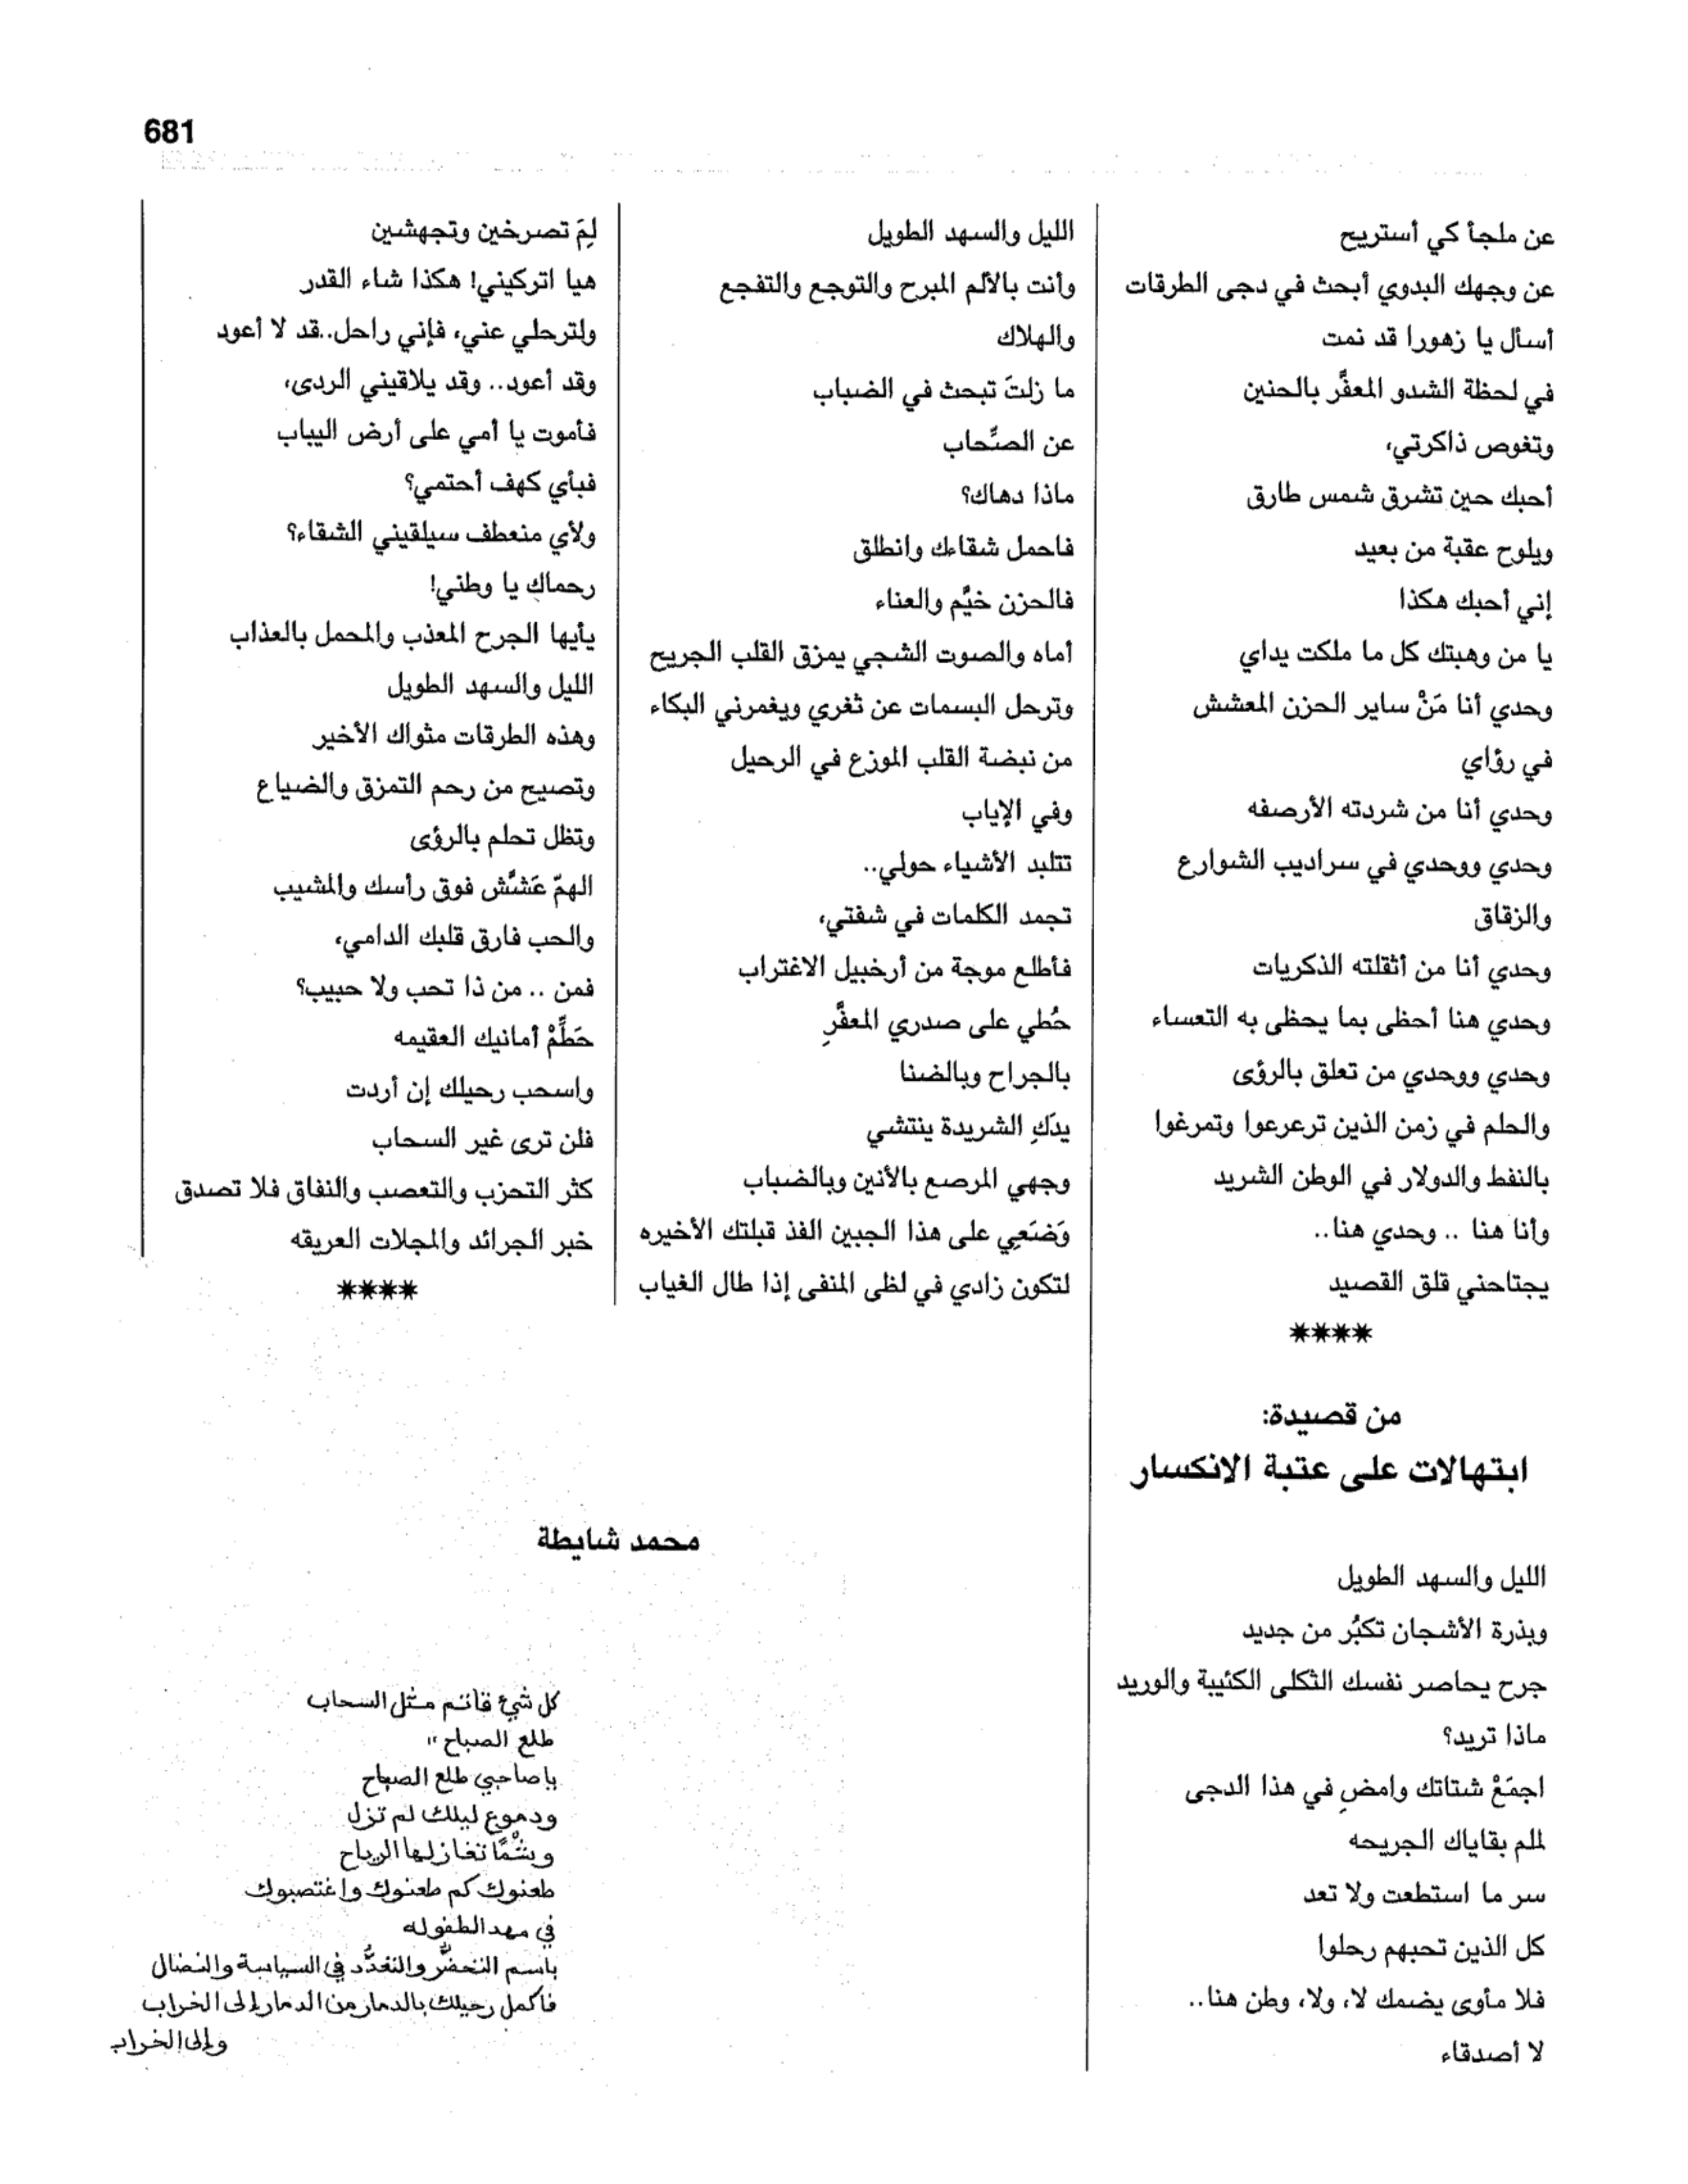 681
عن ملجأ كي أستريح
عن وجهك البدوي أبحث في دجى الطرقات
أسأل يا زهورا قد نمت
في لحظة الشدو المعفَّر بالحنين
وتغوص ذاكرتي،
أحبك حين تشرق شمس طارق
ويلوح عقبة من بعيد
إني أحبك هكذا
يا من وهبتك كل ما ملكت يداي
وحدي أنا مَنْ ساير الحزن المعشش
في رؤاي
وحدي أنا من شردته الأرصفه
وحدي ووحدي في سراديب الشوارع
والزقاق
وحدي أنا من أثقلته الذكريات
وحدي هنا أحظى بما يحظى به التعساء
وحدي ووحدي من تعلق بالرؤى
والحلم في زمن الذين ترعرعوا وتمرغوا
بالنفط والدولار في الوطن الشريد
وأنا هنا .. وحدي هنا..
يجتاحني قلق القصيد
****
من قصيدة:
ابتهالات على عتبة الانكسار
الليل والسهد الطويل
وبذرة الأشجان تكبُر من جديد
جرح يحاصر نفسك الثكلى الكئيبة والوريد
ماذا تريد؟
اجمَعْ شتاتك وامضِ في هذا الدجى
لملم بقاياك الجريحه
سر ما استطعت ولا تعد
كل الذين تحبهم رحلوا
فلا مأوى يضمك لا، ولا، وطن هنا..
لا أصدقاء
الليل والسهد الطويل
وأنت بالألم المبرح والتوجع والتفجع
والهلاك
ما زلتَ تبحث في الضباب
عن الصِّحاب
ماذا دهاك؟
فاحمل شقاءك وانطلق
فالحزن خيَّم والعناء
أماه والصوت الشجي يمزق القلب الجريح
وترحل البسمات عن ثغري ويغمرني البكاء
من نبضة القلب الموزع في الرحيل
وفي الإياب
تتلبد الأشياء حولي..
تجمد الكلمات في شفتي،
فأطلع موجة من أرخبيل الاغتراب
حُطي على صدري المعفَّرِ
بالجراح وبالضنا
يدَكِ الشريدة ينتشي
وجهي المرصع بالأنين وبالضباب
وَضَعِي على هذا الجبين الفذ قبلتك الأخيره
لتكون زادي في لظى المنفى إذا طال الغياب
لِمَ تصرخين وتجهشين
هيا اتركيني! هكذا شاء القدر
ولترحلي عني، فإني راحل..قد لا أعود
وقد أعود.. وقد يلاقيني الردى،
فأموت يا أمي على أرض اليباب
فبأي كهف أحتمي؟
ولأي منعطف سيلقيني الشقاء؟
رحماك يا وطني!
يأيها الجرح المعذب والمحمل بالعذاب
الليل والسهد الطويل
وهذه الطرقات مثواك الأخير
وتصيح من رحم التمزق والضياع
وتظل تحلم بالرؤى
الهمّ عَشَّش فوق رأسك والمشيب
والحب فارق قلبك الدامي،
فمن .. من ذا تحب ولا حبيب؟
حَطِّمْ أمانيك العقيمه
واسحب رحيلك إن أردت
فلن ترى غير السحاب
كثر التحزب والتعصب والنفاق فلا تصدق
خبر الجرائد والمجلات العريقه
****
محمد شايطة
كل شيئ قاتم مثل السحاب
طلع الصباح "
يا صاحبي طلع الصباح
ودموع ليلك لم تزل
وشْمًا تغازلها الرياح
طعنوك كم طعنوك واغتصبوك
في مهد الطفوله
باسم التحضُّر والتعدُّد في السياسة والنضال
فاكمل رحيلك بالدمار من الدمار إلى الخراب
وإلى الخراب